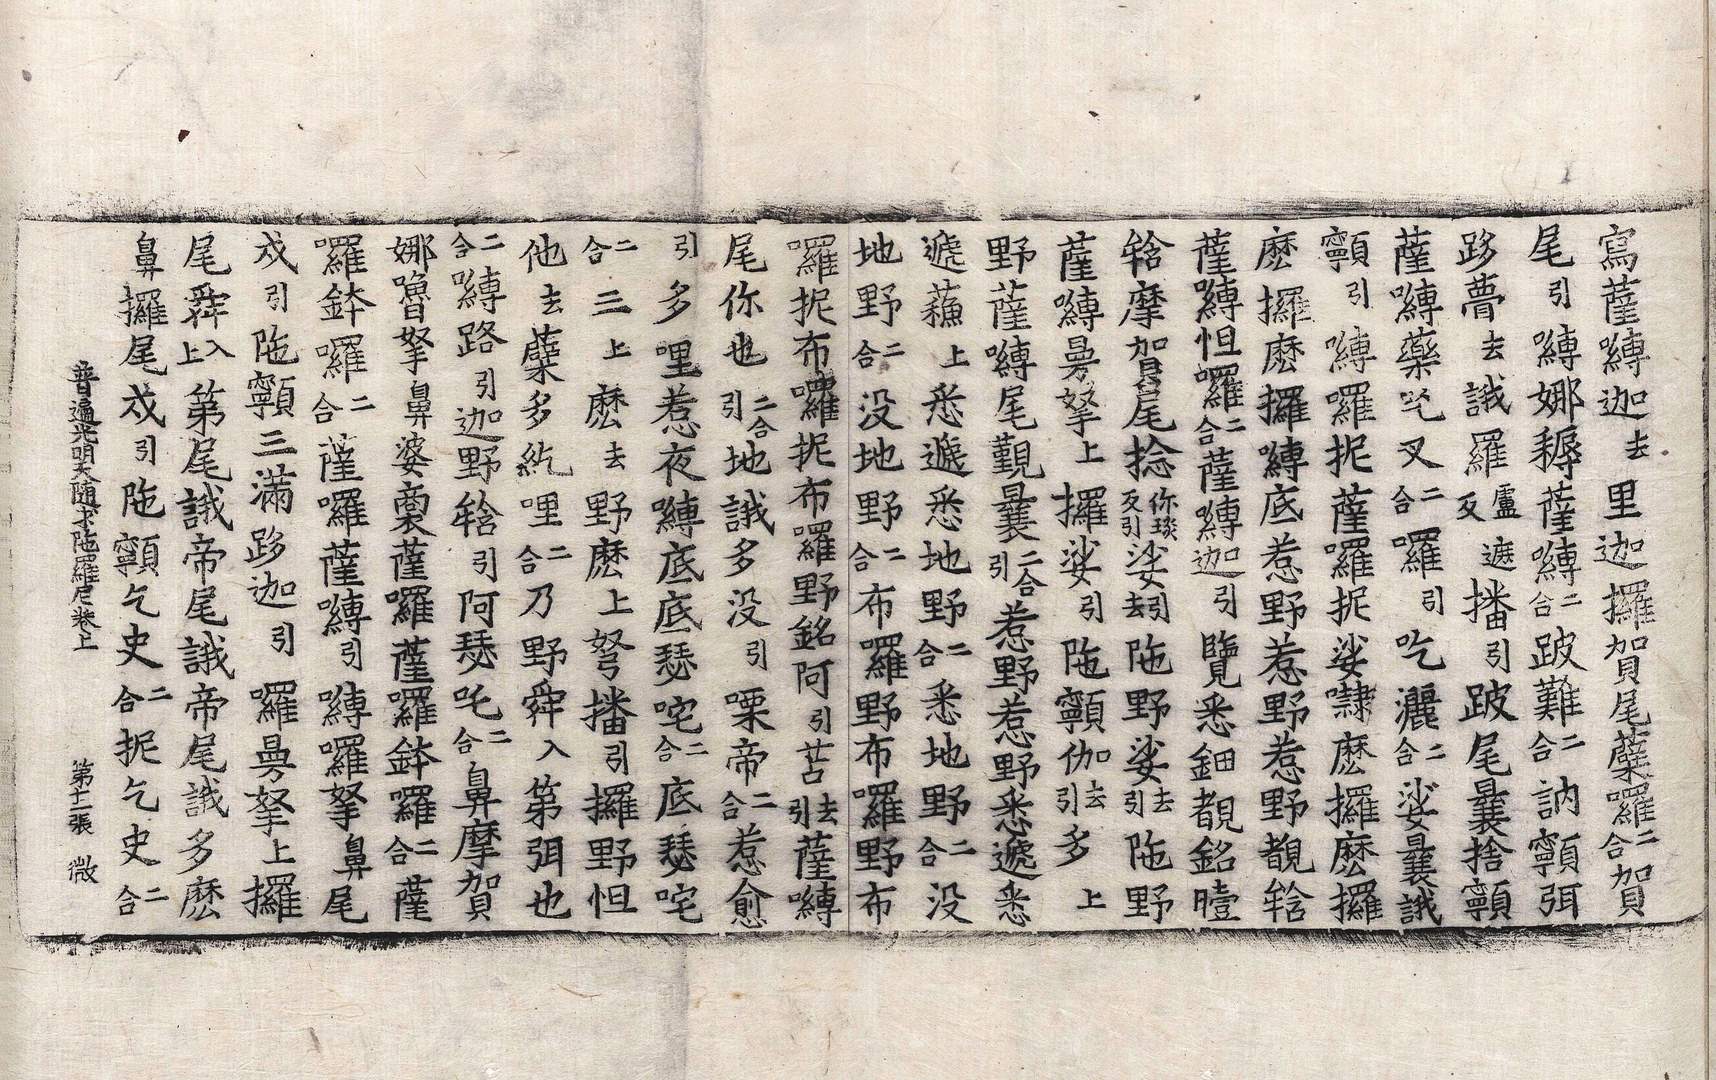 寫薩嚩迦去里迦攞賀尾蘖囉二合賀
尾引嚩娜耨薩嚩二合跛難二合訥寧頁弭
跢瞢去誐羅盧遮反播引跛尾曩捨顊
薩嚩藥吃叉二合囉引吃灑二合娑曩誐
顊引嚩囉抳薩囉抳娑隸麽攞麽攞
麽攞麽攞嚩底惹野惹野惹野覩㮈
薩嚩怛囉二合薩嚩迦引覽悉鈿覩銘曀
㮈摩賀尾捻你琰反引娑去引陁野娑去引陁野
薩嚩曼拏上攞娑引陁顊伽去引多上
野薩嚩尾覲曩二合引惹野惹野悉遞悉
遞蘓上悉遞悉地野二合悉地野二合没
地野二合没地野二合布囉野布囉野布
囉抳布囉抳布囉野銘阿引苫去引薩嚩
尾你也二合引地誐多没引㗚帝二合惹愈
引多哩惹夜嚩底底瑟咤二合底瑟咤
二合三上麽去野麽上弩播引攞野怛
他去蘖多紇哩二合乃野舜入第弭也
二合嚩路引迦野㮈引阿瑟吒二合鼻摩賀
娜嚕拏鼻婆裔薩囉薩囉鉢囉二合薩
囉鉢囉二合薩囉薩嚩引嚩囉拏鼻尾
戍引陁顊三滿跢迦引囉曼拏上攞
尾舜入上第尾誐帝尾誐帝尾誐多麽
鼻攞尾戍引陁顊乞史二合抳乞史二合
普遍光明大随求陁羅尼卷上 第十二張 微